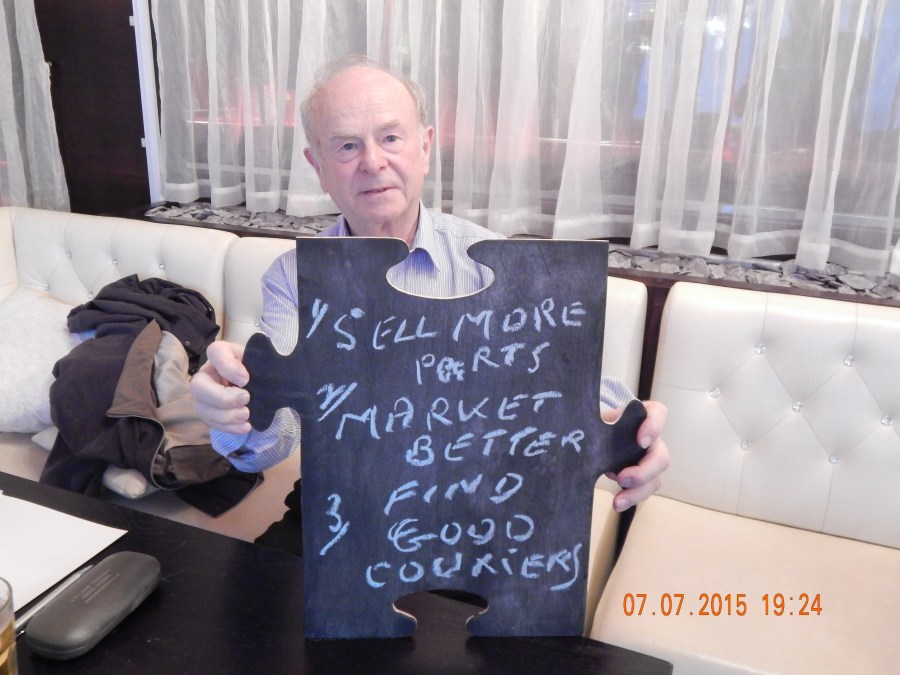 1/ SELL MORE
PARTS
2/ MARKET
BETTER
3/ FIND
GOOD
COURIERS
07.07.2015 19:24